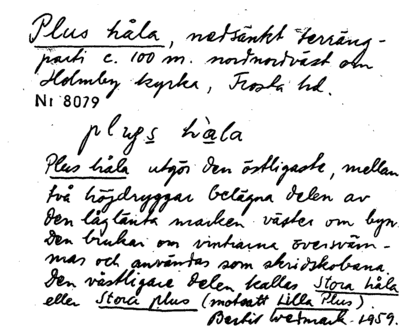 Plus håla, nedsänkt terräng-
parti c. 100 m. nordnordväst om
Holmby kyrka, Frosta hd.
Nr 8079
plugs hàla
Plus håla utgör den östligaste, mellan
två höjdryggar belägna delen av
den låglänta marken väster om byn.
Den brukar om vintrarna översväm-
mas och användas som skridskobana.
Den västligare delen kallas Stora håla
eller Stora plus (motsatt Lilla Plus).
Bertil Wedmark 1959.